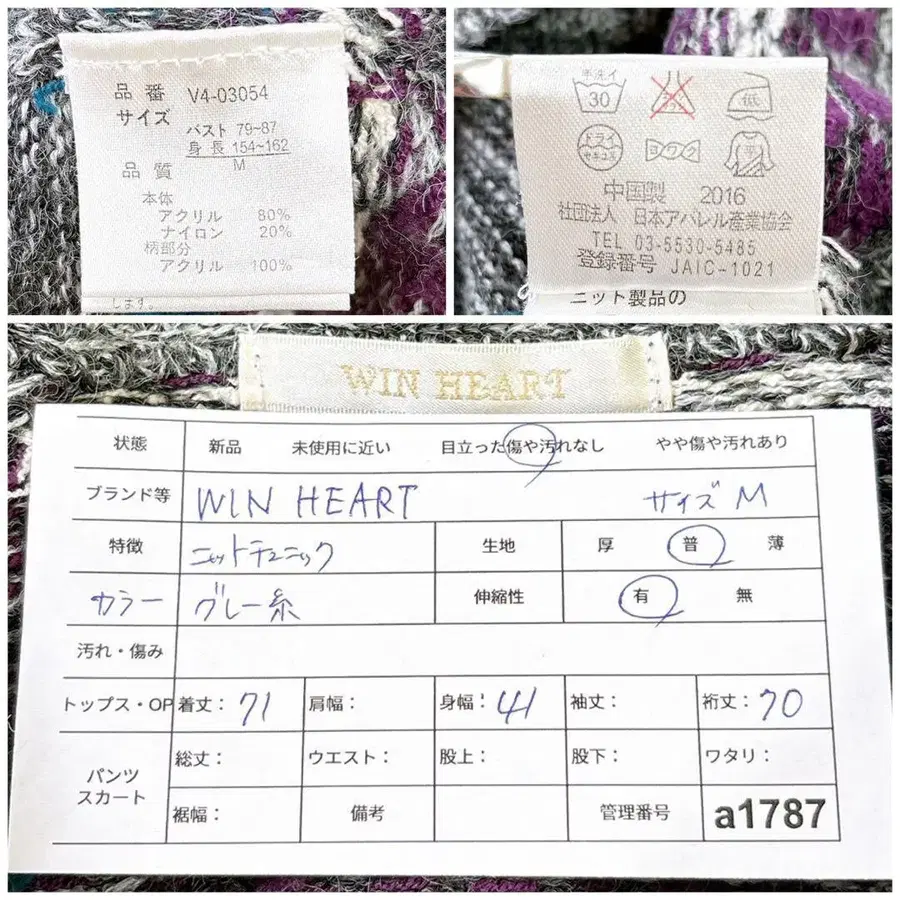 品番 V4-03054
サイズ
バスト 79~87
身長 154~162
M
品質
本体
アクリル 80%
ナイロン 20%
柄部分
アクリル 100%
します。
手洗イ
30
低
ドライ
セキユ系
ヨワク
平
中国製 2016
社団法人 日本アパレル産業協会
TEL 03-5530-5485
登録番号 JAIC-1021
ニット製品の
WIN HEART
状態 新品 未使用に近い 目立った傷や汚れなし やや傷や汚れあり
ブランド等 WIN HEART サイズ M
特徴 ニットチュニック 生地 厚 普 薄
カラー グレー系 伸縮性 有 無
汚れ・傷み
トップス・OP 着丈：71 肩幅： 身幅：41 袖丈： 裄丈：70
パンツ スカート 総丈： ウエスト： 股上： 股下： ワタリ：
裾幅： 備考 管理番号 a1787